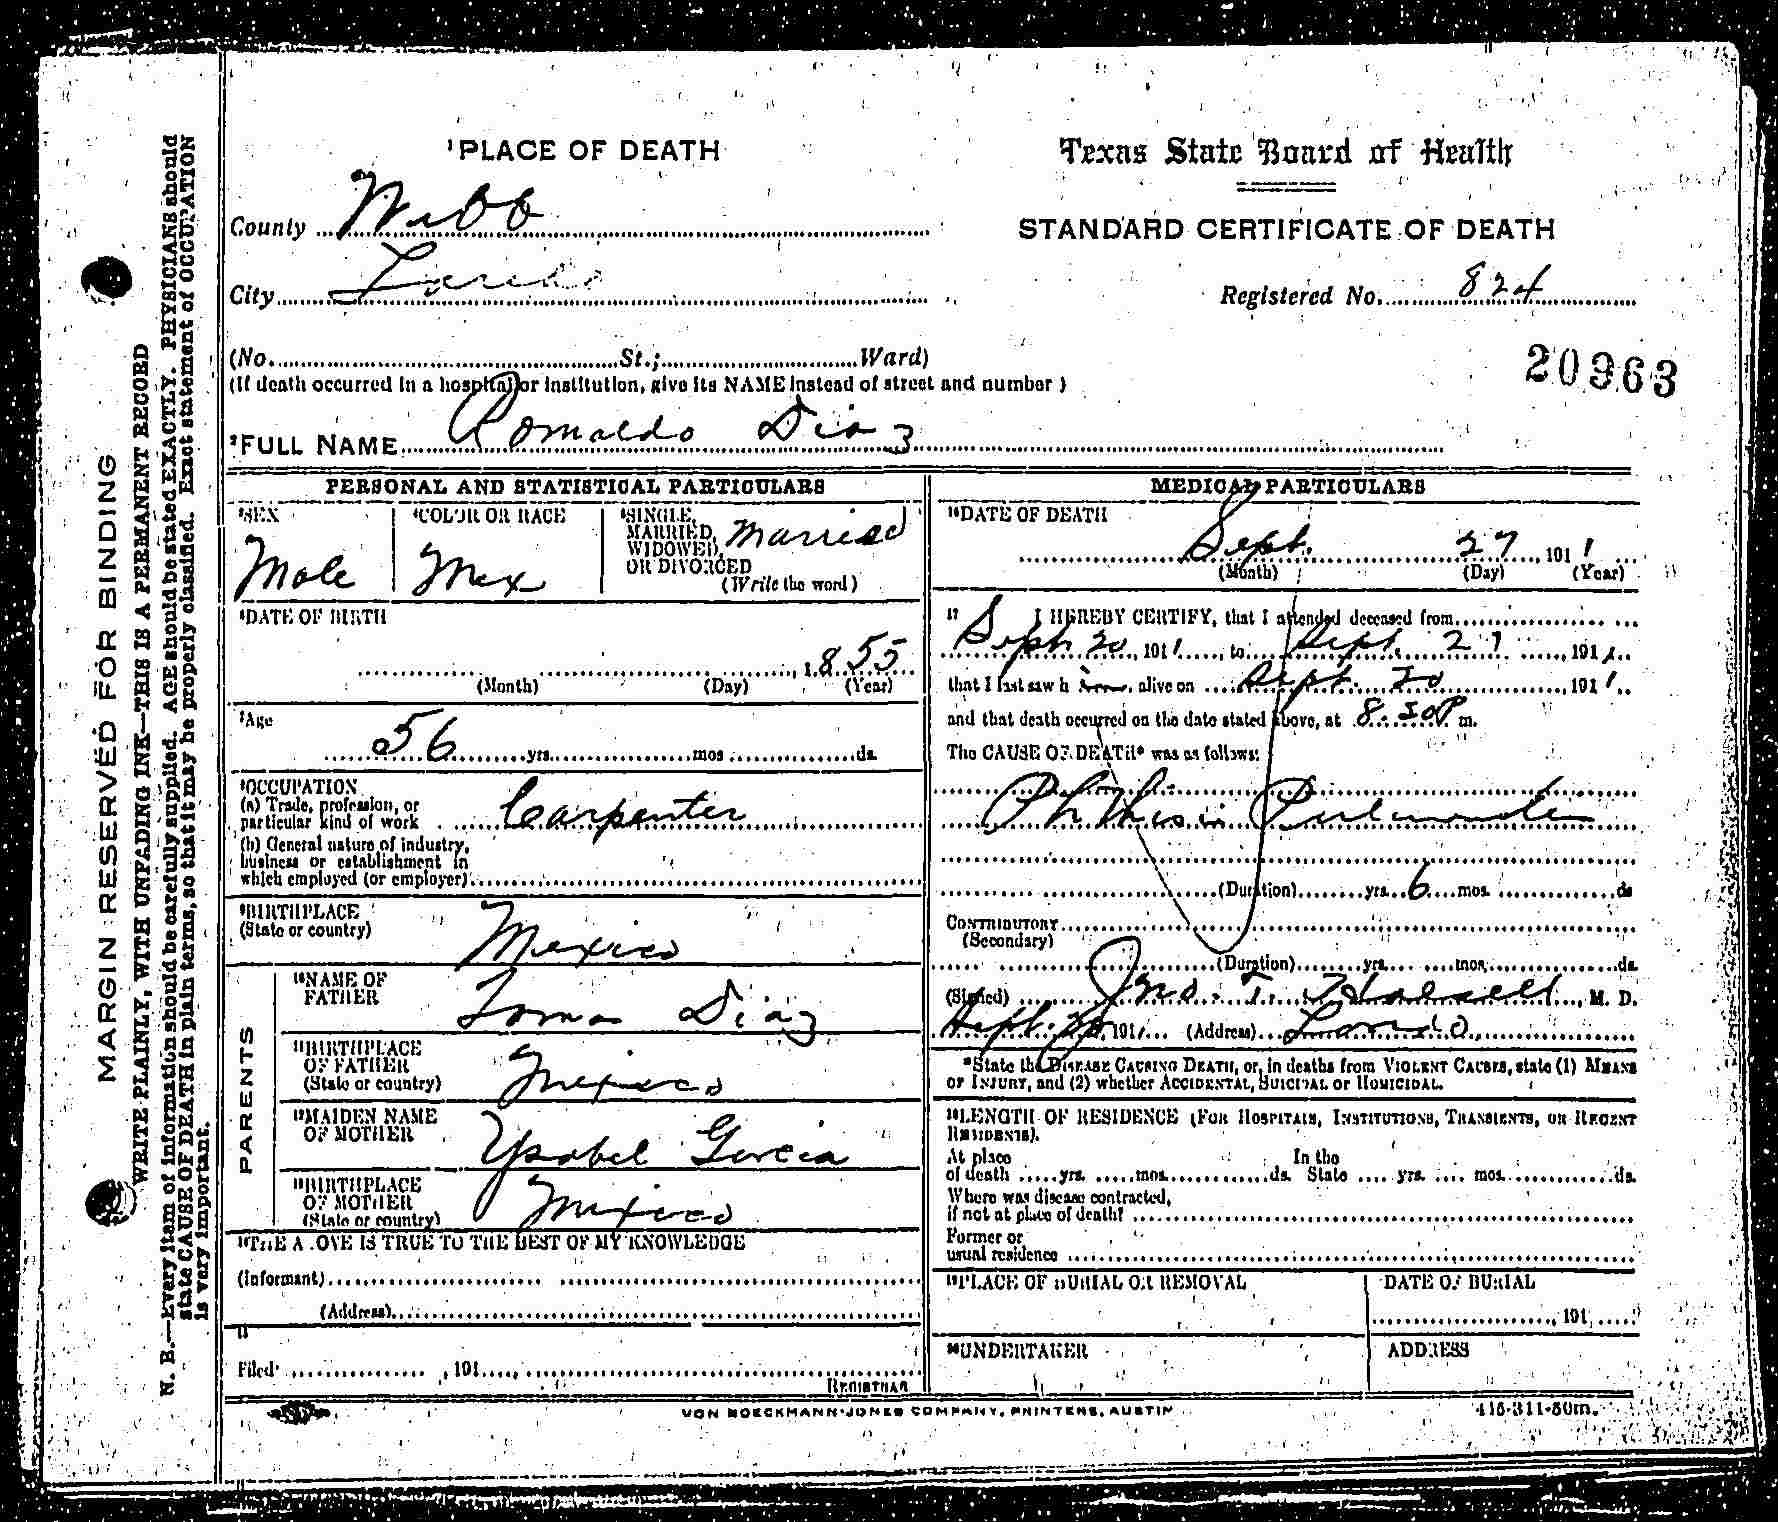 ¹PLACE OF DEATH
County Webb
City Laredo
(No. St.; Ward)
(If death occurred in a hospital or institution, give its NAME instead of street and number)
²FULL NAME Romaldo Diaz
Texas State Board of Health
STANDARD CERTIFICATE OF DEATH
Registered No. 824
20963
PERSONAL AND STATISTICAL PARTICULARS
³SEX Male
⁴COLOR OR RACE Mex
⁵SINGLE, MARRIED, WIDOWED, OR DIVORCED Married
(Write the word)
⁶DATE OF BIRTH
1855
(Month) (Day) (Year)
⁷Age
56 yrs. mos. ds.
⁸OCCUPATION
(a) Trade, profession, or
particular kind of work Carpenter
(b) General nature of industry,
business or establishment in
which employed (or employer)
⁹BIRTHPLACE
(State or country) Mexico
PARENTS
¹⁰NAME OF
FATHER Tomas Diaz
¹¹BIRTHPLACE
OF FATHER
(State or country) Mexico
¹²MAIDEN NAME
OF MOTHER Ysabel Garcia
¹³BIRTHPLACE
OF MOTHER
(State or country) Mexico
¹⁴THE ABOVE IS TRUE TO THE BEST OF MY KNOWLEDGE
(Informant)
(Address)
15
Filed , 191 
REGISTRAR
MEDICAL PARTICULARS
¹⁶DATE OF DEATH
Sept. 27, 1911
(Month) (Day) (Year)
17 I HEREBY CERTIFY, that I attended deceased from
Sept 20, 1911, to Sept. 27, 1911
that I last saw h im alive on Sept. 20, 1911
and that death occurred on the date stated above, at 8.30P m.
The CAUSE OF DEATH* was as follows:
Phthisis
(Duration) yrs. 6 mos. ds
CONTRIBUTORY
(Secondary)
(Duration) yrs. mos. ds.
(Signed) Jno. T. Halsell, M. D.
Sept. 191 (Address) Laredo
*State the DISEASE CAUSING DEATH, or, in deaths from VIOLENT CAUSES, state (1) MEANS
OF INJURY, and (2) whether ACCIDENTAL, SUICIDAL or HOMICIDAL.
¹⁸LENGTH OF RESIDENCE (FOR HOSPITALS, INSTITUTIONS, TRANSIENTS, OR RECENT
RESIDENTS).
At place In the
of death yrs. mos. ds. State yrs. mos. ds.
Where was disease contracted,
if not at place of death?
Former or
usual residence
¹⁹PLACE OF BURIAL OR REMOVAL
DATE OF BURIAL
, 191
²⁰UNDERTAKER
ADDRESS
VON BOECKMANN-JONES COMPANY, PRINTERS, AUSTIN
415-311-50m.
MARGIN RESERVED FOR BINDING
WRITE PLAINLY, WITH UNFADING INK—THIS IS A PERMANENT RECORD
N. B.—Every item of information should be carefully supplied. AGE should be stated EXACTLY. PHYSICIANS should
state CAUSE OF DEATH in plain terms, so that it may be properly classified. Exact statement of OCCUPATION
is very important.